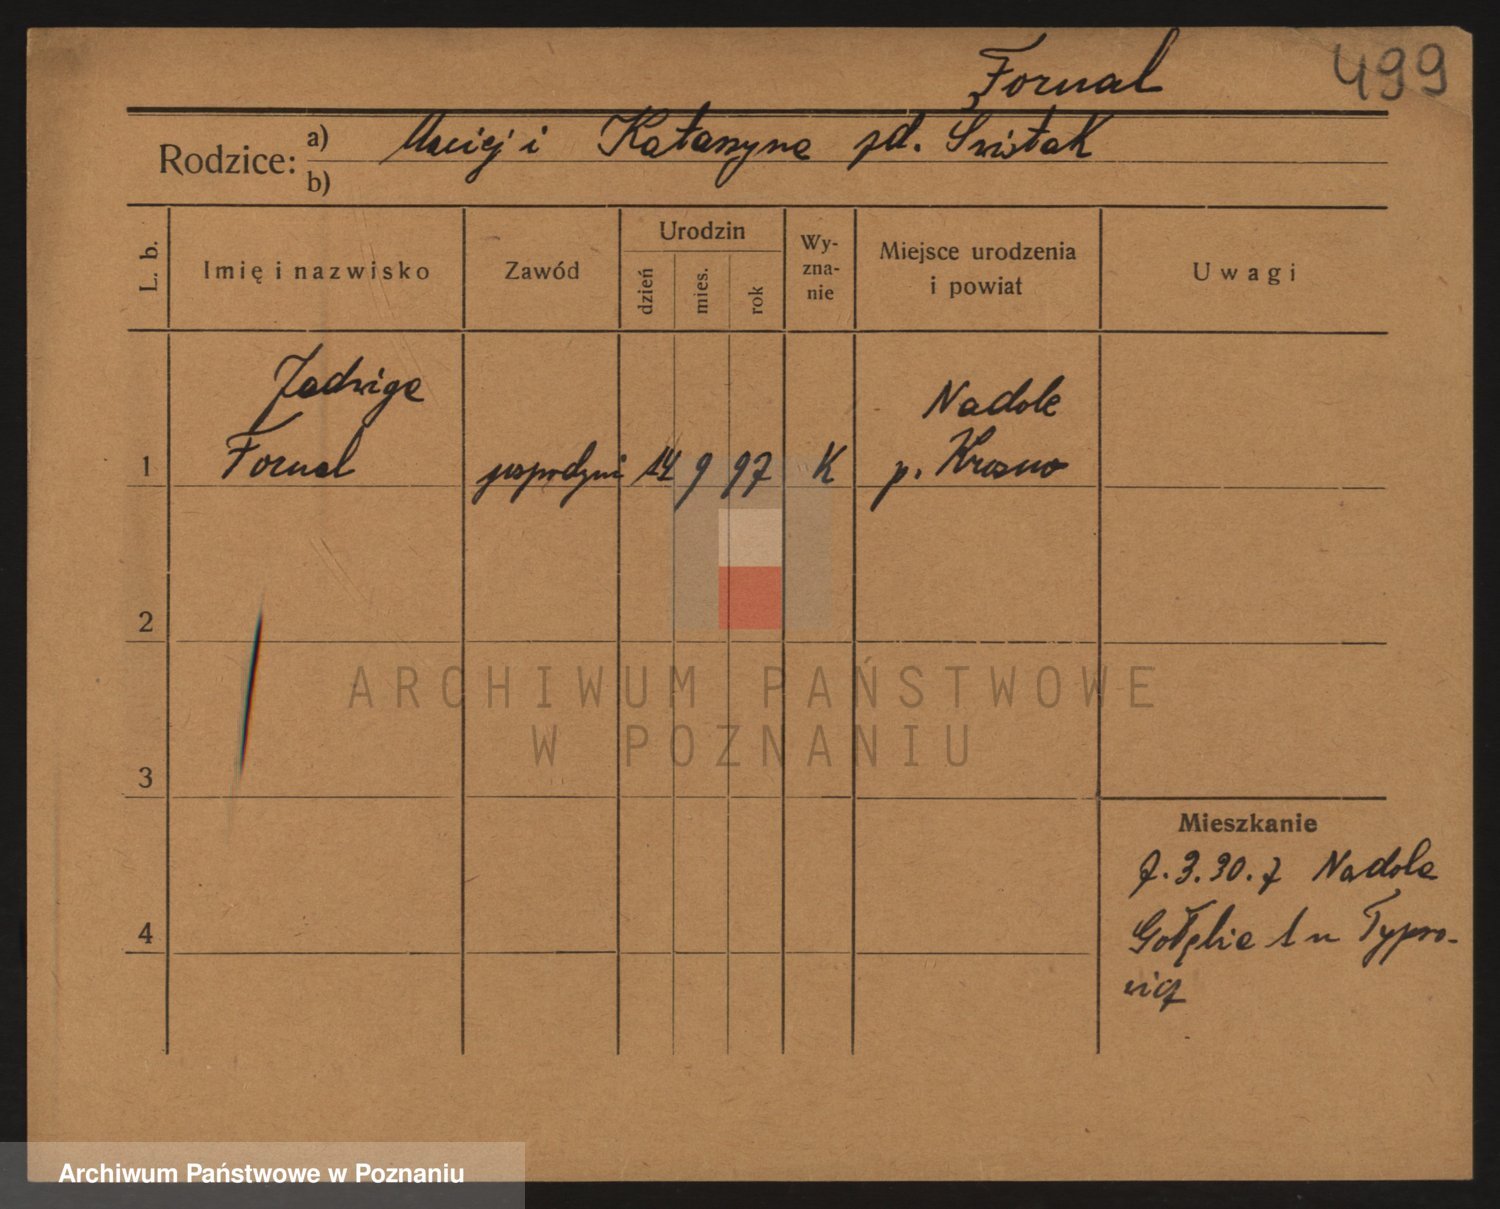 Fornal
499
Rodzice:
a) Maciej i Katarzyna zd. Swistak
b)
L. b.
Imię i nazwisko
Zawód
Urodzin
dzień
mies.
rok
Wy-
zna-
nie
Miejsce urodzenia
i powiat
Uwagi
Jadwiga
Nadole
1 Fornal gospodyni 14 9 97 K p. Krosno
2
ARCHIWUM PAŃSTWOWE
W POZNANIU
3
Mieszkanie
7.3.30. z Nadola
4
Gołębia 1 u Typro-
wicz
Archiwum Państwowe w Poznaniu